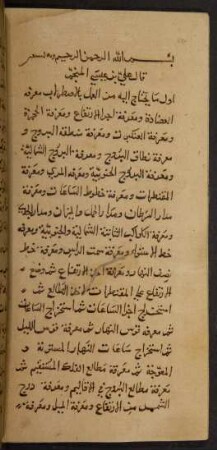 بسم الله الرحمن الرحيم وبه نستعين
قال علي بن عيسى المنجم
اول ما يحتاج إليه من العمل بالاصطرلاب معرفة
العضادة ومعرفة اجزا الارتفاع ومعرفة الحجرة
ومعرفة العنكبوت ومعرفة منطقة البروج و
معرفة نطاق البروج ومعرفة البروج الشمالية
ومعرفة البروج الجنوبية ومعرفة المري ومعرفة
المقنطرات ومعرفة خطوط الساعات ومعرفة
مدار السرطان ومدار الحمل والميزان ومدار الجدي
ومعرفة الكواكب الثابتة الشمالية والجنوبية ومعرفة
خط الاستواء ومعرفة سمت الراس ومعرفة خط
نصف النهار ومعرفة اخذ الارتفاع ثم وضع
الارتفاع على المقنطرات ثم اخذ الطالع ثم
استخراج اجزا الساعات ثم استخراج الساعات
ثم معرفة قوس النهار ثم معرفة قوس الليل
ثم استخراج ساعات النهار المستوية و
المعوجة ثم معرفة مطالع الفلك المستقيم ثم
معرفة مطالع البروج في الاقاليم ومعرفة درج
الشمس من الارتفاع ومعرفة الميل ومعرفة